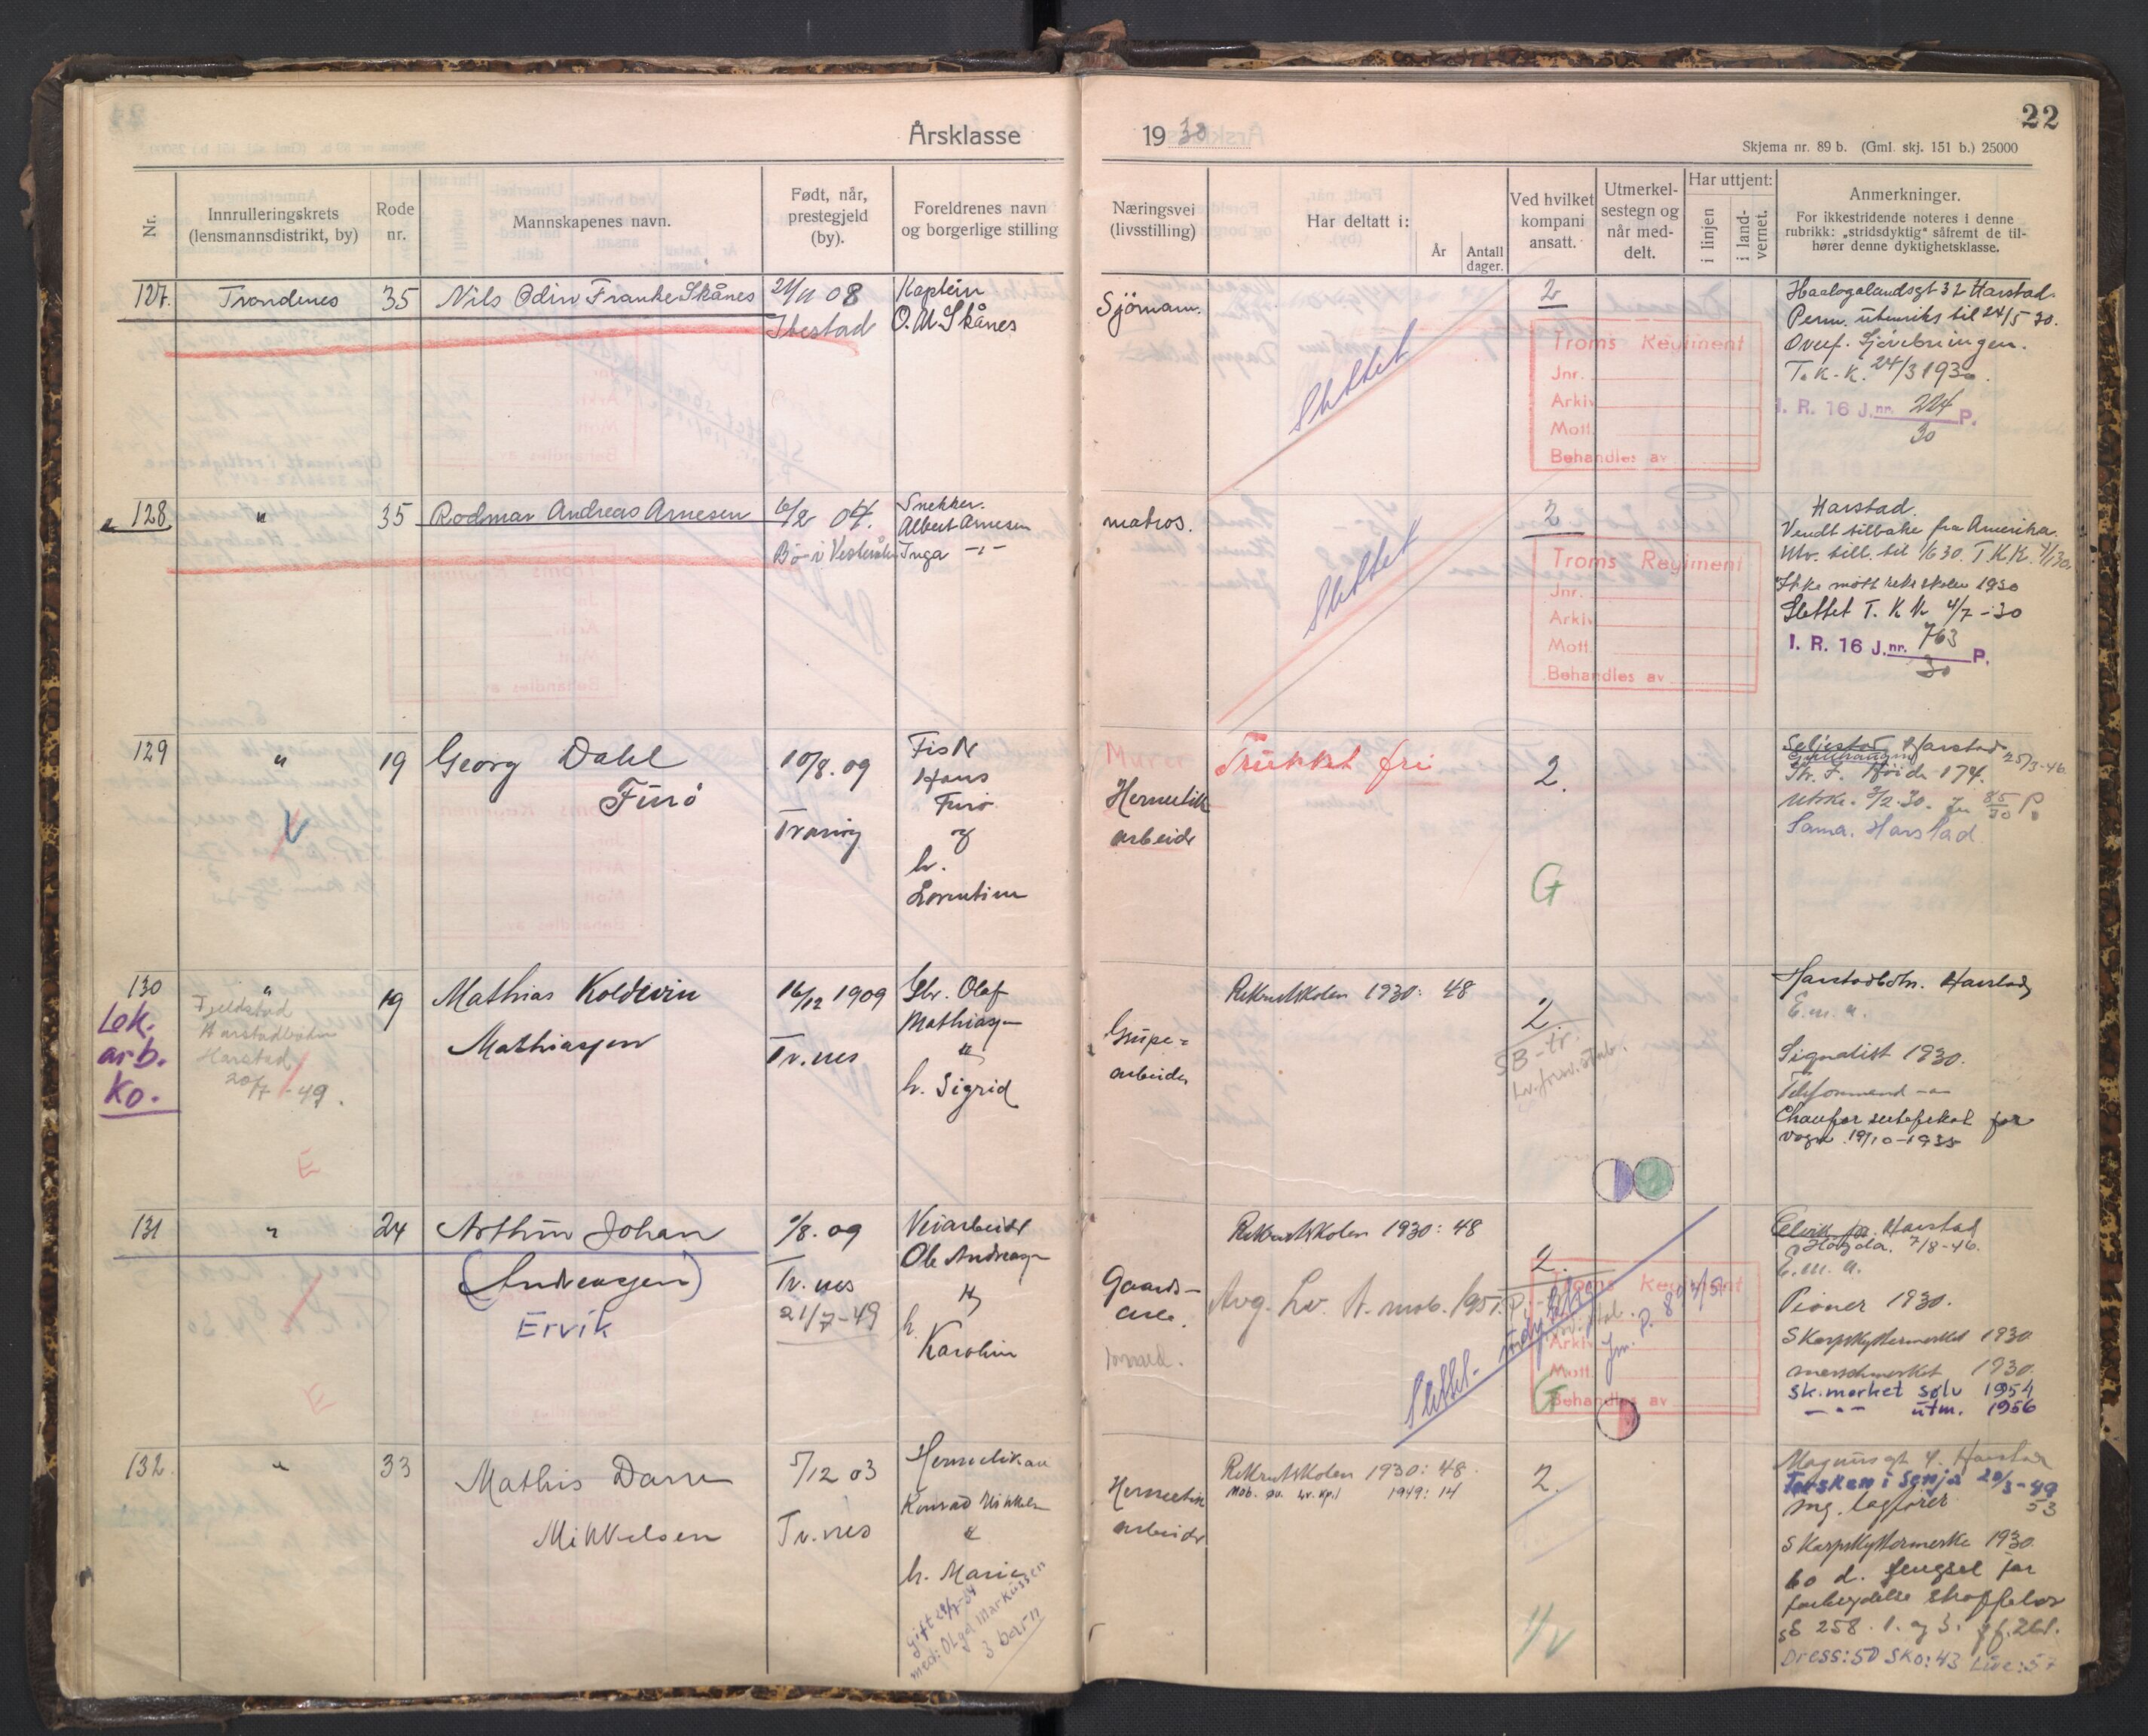 Årsklasse
19 30
22
Skjema nr. 89 b. (Gml. skj. 151 b.) 25000
Nr.
Innrulleringskrets
(lensmannsdistrikt, by)
Rode
nr.
Mannskapenes navn.
Født, når,
prestegjeld
(by).
Foreldrenes navn
og borgerlige stilling
Næringsvei
(livsstilling)
Har deltatt i:
År
Antall
dager.
Ved hvilket
kompani
ansatt.
Utmerkel-
sestegn og
når med-
delt.
Har uttjent:
i linjen
i land-
vernet.
Anmerkninger.
For ikkestridende noteres i denne
rubrikk: „stridsdyktig" såfremt de til-
hører denne dyktighetsklasse.
127.
Trondenes
35
Nils Odin Franke Skånes
24/11 08
Ibestad
Kaptein
O. M. Skånes
Sjömann.
Slettet
2
Troms Regiment
Jnr.
Arkiv
Mott.
Behandles av
Haalogalandsgt 32 Harstad.
Perm. utenriks til 24/5 30.
Overf. Sjövebningen.
T. K. K. 24/3 1930.
I. R. 16 J.nr. 224 P.
30
128
"
35
Rodmar Andreas Arnesen
6/2 04.
Bö i Vesterålen
Snekker.
Albert Arnesen
Inga -"-
matros.
Slettet
2
Troms Regiment
Jnr.
Arkiv
Mott.
Behandles av
Harstad.
Vendt tilbake fra Amerika.
Utv. till. til 1/6 30. T.K.K.
Ikke møtt rekrskolen 1930
Slettet T. K. K. 4/7 - 30
I. R. 16 J.nr. 763 P.
30
129
"
19
Georg Dahl
Furö
10/8. 09
Tranöy
Fisk
Hans
Furö
og
h.
Lorentine
Murer
Hermetikk
arbeider
Trukket fri
2.
G
Seljestad Harstad
25/3-46
174.
Utskr. 3/2.30. Jn 85/30 P.
Sama. Harstad
130
Lok.
arb.
Ko.
"
Fjeldstad
Harstadbotn
Harstad
20/7 - 49.
E
19
Mathias Koldevin
Mathiassen
16/12 1909
Tr.nes
Gbr. Olaf
Mathiassen
"
h. Sigrid
Grube=
arbeider
Rekrutskolen 1930: 48
2.
SB-tr.
Harstadbotn. Harstad
E. m. a.
Signalist 1930.
Telefonmand -"-
Chaufør sertefikat for
vogn 19/10-1935
131
"
24
Arthur Johan
(Andreasen)
Ervik
1/8. 09
Tr. nes
21/7-49
Veiarbeider
Ole Andreasen
"
h.
Karolin
Gaards-
arb.
Rekrutskolen 1930: 48
Avg. Lv. A. mob. 1951.
2.
Slettet.
Troms Regiment
Arkiv
Mott.
Behandles av
G
E
Harstad
7/8-46.
E. m. a.
Pioner 1930.
Skarpskyttermerket 1930
marschmerket 1930.
sk.merket sølv 1954
-"- utm. 1956
132.
"
33
Mathis Dann
Mikkelsen
5/12 03
Tr.nes
Hermetikarb
Konrad Mikkelsen
"
h. Marie
gift
med: Olga Markussen
3 barn
Hermetikk
arbeider
Rekrutskolen 1930: 48.
Mob. øv. Lv. Kp. 1 1949: 14
2.
Magnus gt 4. Harstad
Torsken i Senja 20/3-49
Mg. lagfører 53
Skarpskyttermerke 1930.
60 d. fengsel for
forbrydelse straffelov
§§ 258. 1. og 3.
Dress: 50 Sko: 43 Lue: 57